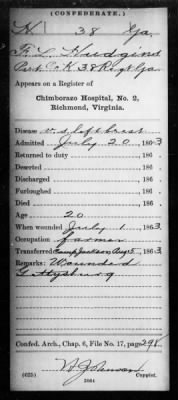 (CONFEDERATE.)
H 38 Ga.
F. L. Hudgins
Pvt. Co. K, 38 Regt. Ga.
Appears on a Register of
Chimborazo Hospital, No. 2,
Richmond, Virginia.
Disease v. s. left brest
Admitted July 20, 1863
Returned to duty , 186
Deserted , 186
Discharged , 186
Furloughed , 186
Died , 186
Age 20
When wounded July 1, 1863
Occupation farmer
Transferred Camp Jackson Aug 5, 1863
Remarks: Wounded
Gettysburg
Confed. Arch., Chap. 6, File No. 17, page 298
(635) Copyist.